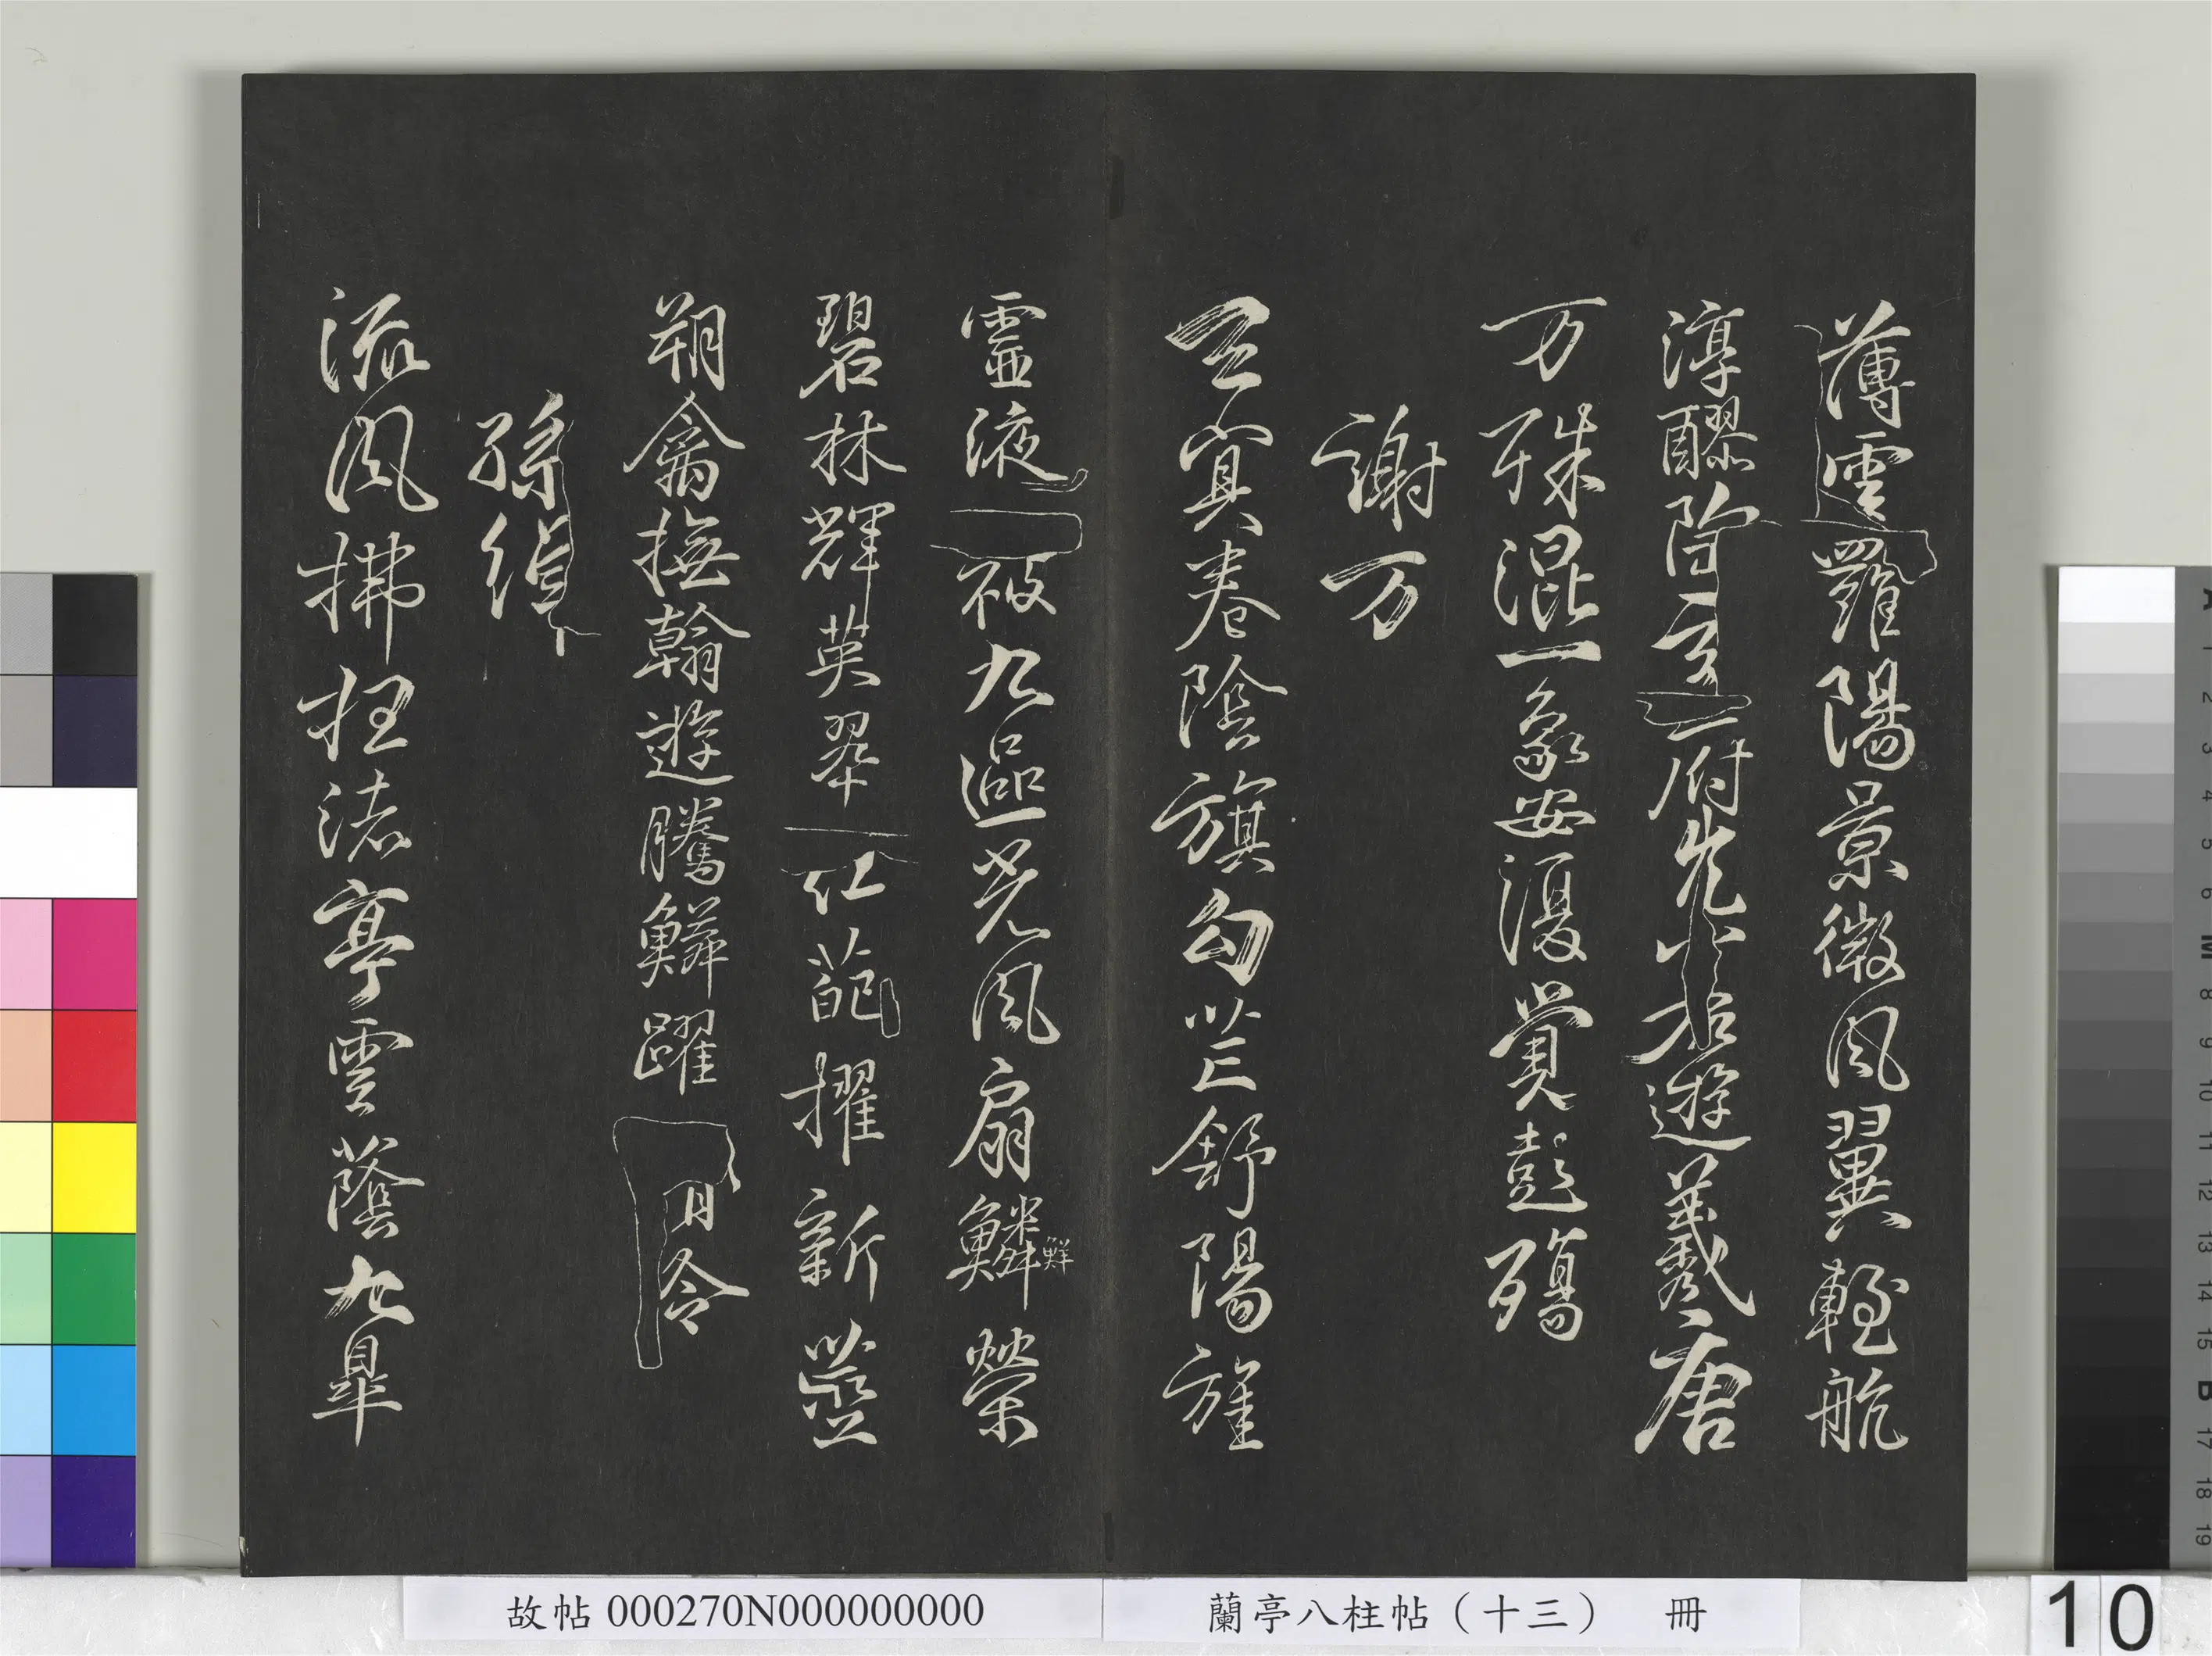 薄雲羅陽景微風翼輕航
淳醪陶玄府兀若遊羲唐
万殊混一象安復覺彭殤
謝万
玄冥卷陰旗勾芒舒陽旌
靈液被九區光風扇鱗鮮榮
碧林輝英翠紅葩擢新莖
翔禽撫翰遊騰鱗躍清泠
孫綽
流風拂枉渚亭雲蔭九皐
故帖000270N000000000
蘭亭八柱帖（十三） 冊
10